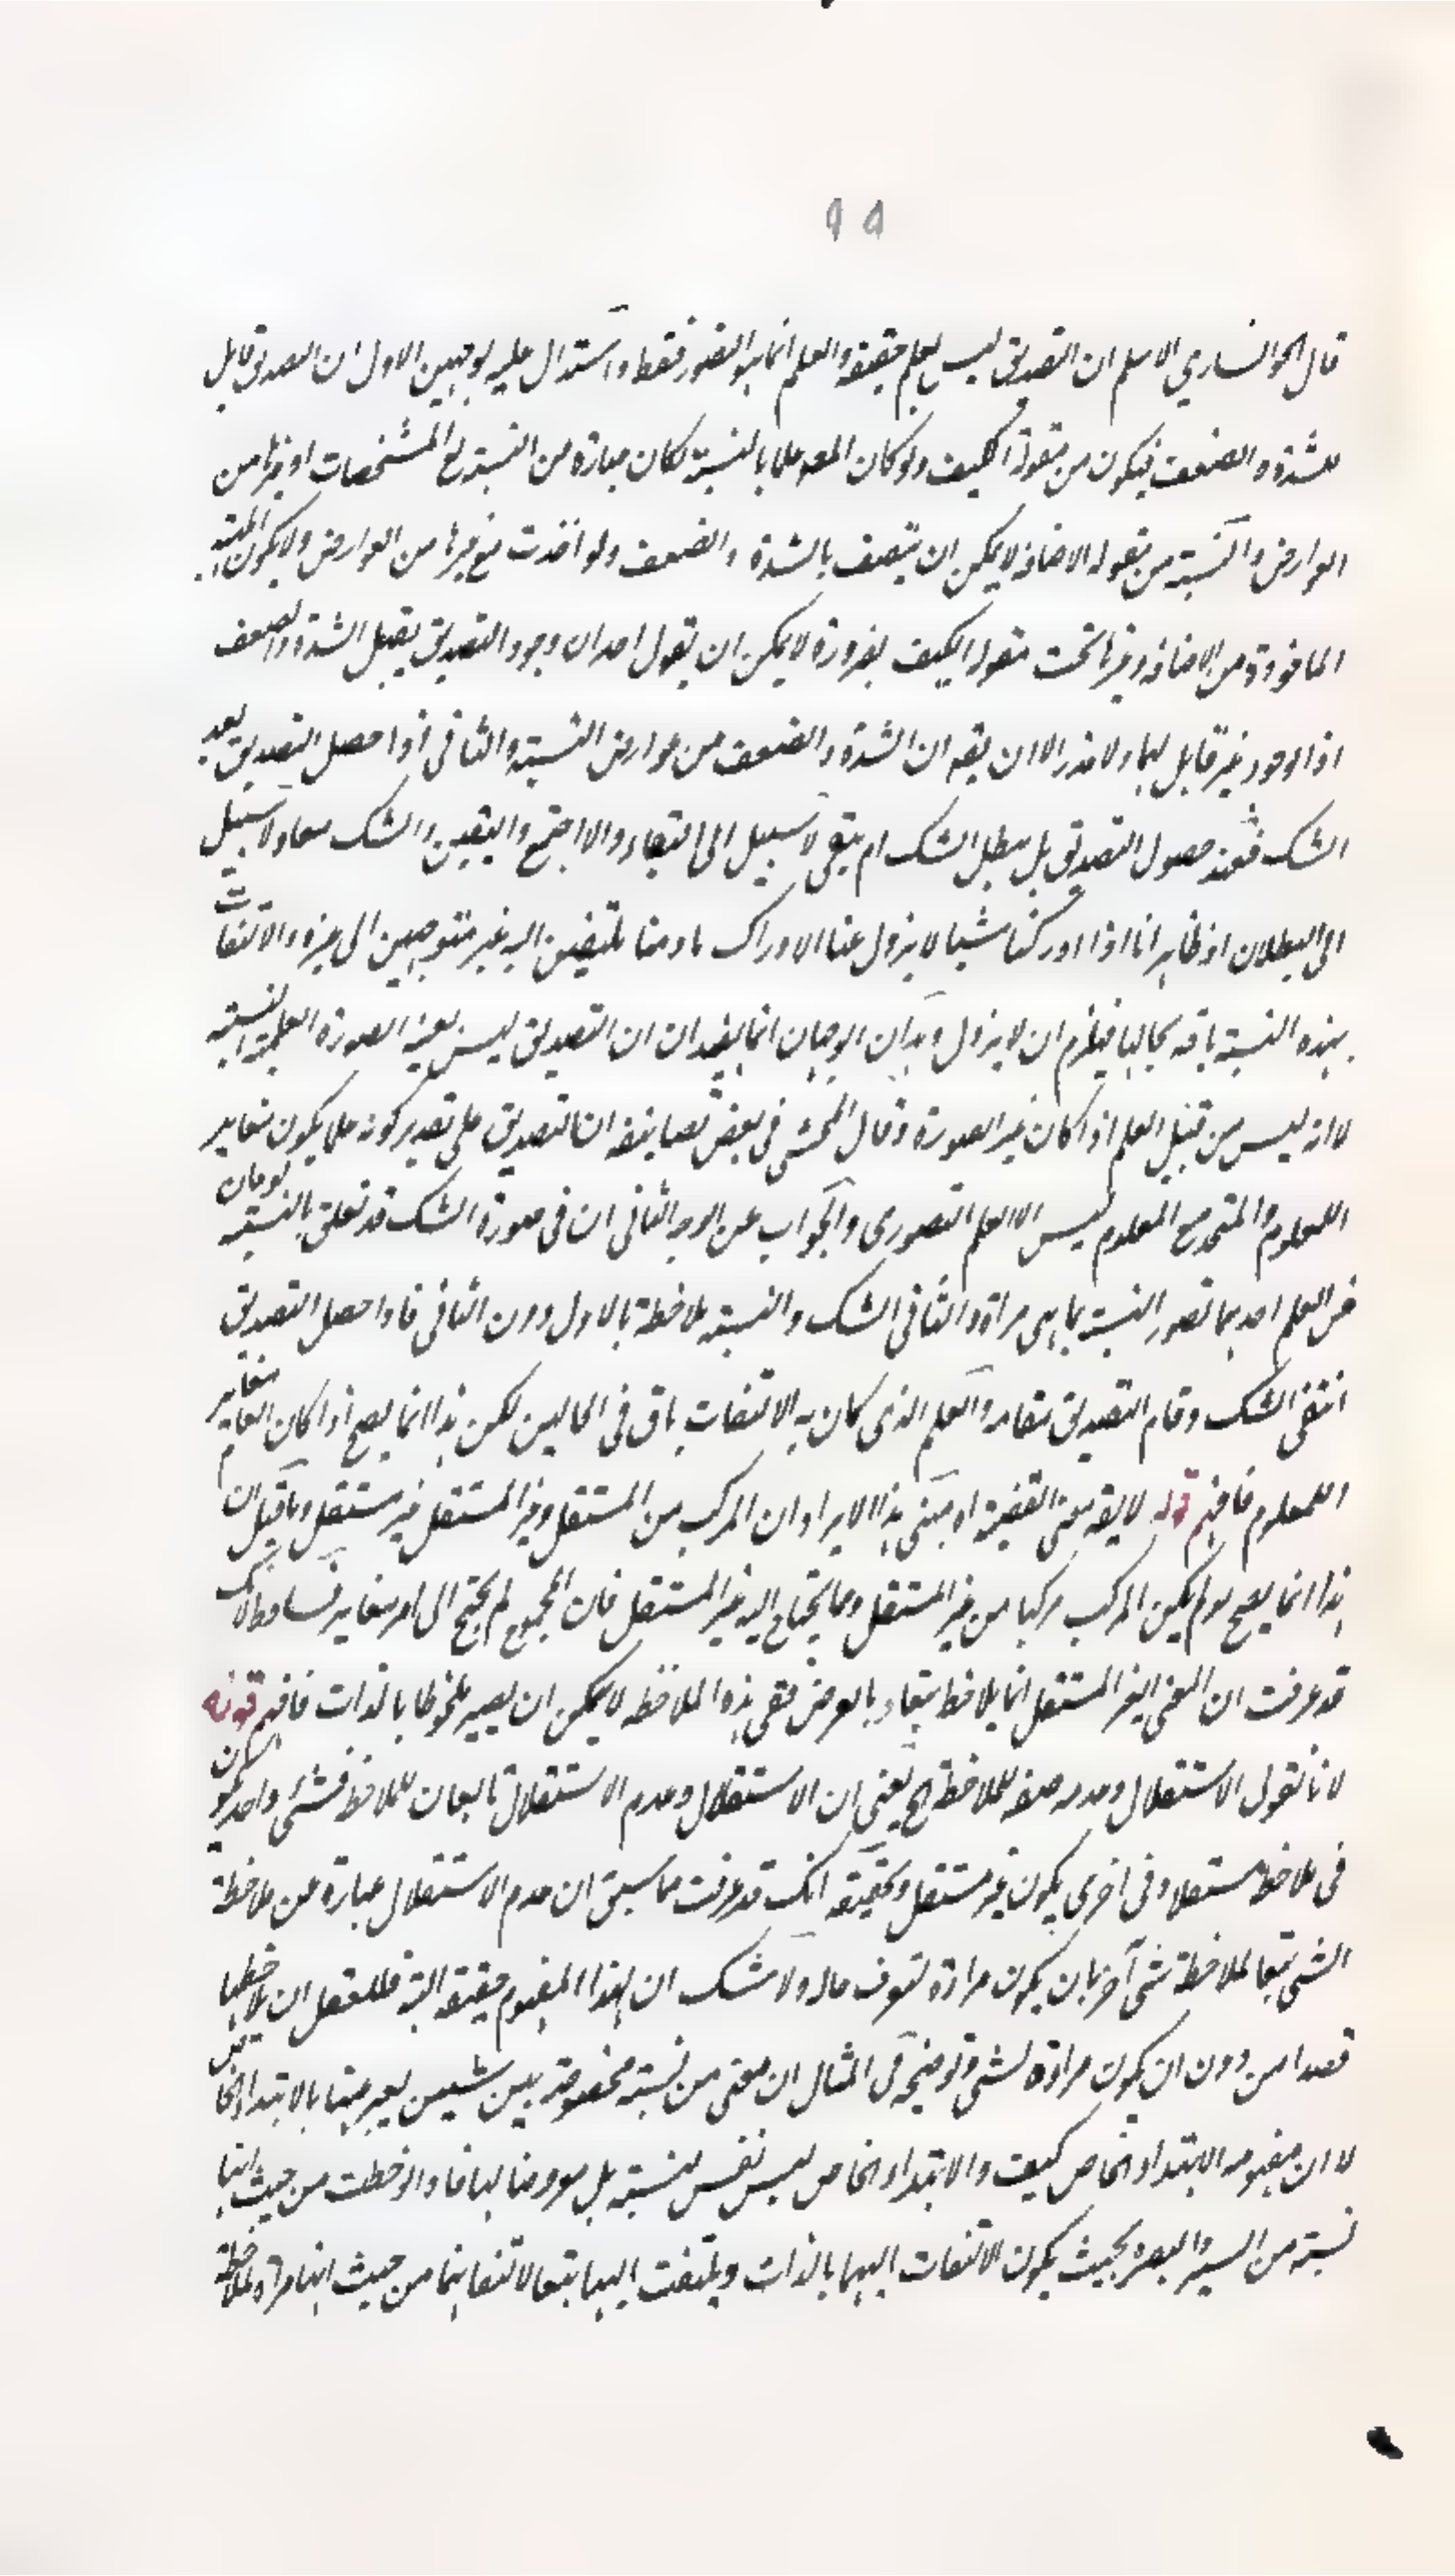 ٩٥
قال الخوانساري الاسلم ان التصديق ليس بعلم حقيقة والعلم انما هو التصور فقط واستدل عليه بوجهين الاول ان التصديق قابل
للشدة والضعف فيكون من مقولة الكيف ولو كان علما بالنسبة لكان عبارة من النسبة مع المشخصات او غيرها من
العوارض والنسبة من مقولة الاضافة لا يمكن ان يتصف بالشدة والضعف ولو اخذت مع غيرها من العوارض ولا يكون
الماخوذة من الاضافة وغيرها تحت مقولة الكيف بضرورة لا يمكن ان يقول احد ان وجود التصديق يقبل الشدة والضعف
اذ الوجود غير قابل لهما ولا عذر الا ان يقه ان الشدة والضعف من عوارض النسبة والثاني اذا حصل التصديق بعد
الشك فعند حصول التصديق بل يبطل الشك ام يبقى لا سبيل الى البقاء والا اجتمع اليقين والشك معا ولا سبيل
الى البطلان اذ ظاهر انا اذا ادركنا شيئا لا يزول عنا الادراك ما دمنا ملتفتين اليه غير متوجهين الى غيره والالتفات
بهذه النسبة باقه بحالها فيلزم ان لا يزول وهذان الوجهان انما يفيدان ان التصديق ليس بعينه الصورة العلمية النسبية
لا انه ليس من قبيل العلم اذا كان غير الصورة وقال المحشي في بعض تصانيفه ان التصديق على تقدير كونه علما يكون مغاير
للمعلوم والمتحد مع المعلوم ليس الا العلم التصوري والجواب عن الوجه الثاني ان في صورة الشك قد تعلق بالنسبة نوعان
من العلم احدهما تصور النسبة بما هي مراة والثاني الشك والنسبة ملاحظة بالاول دون الثاني فاذا حصل التصديق
انتفى الشك وقام التصديق مقامه والعلم الذي كان به الالتفات باق في الحالين لكن هذا انما يصح اذا كان العلم مغاير
للمعلوم فافهم قوله لا يقه معنى القضية اه مبنى هذا الايراد ان المركب من المستقل وغير المستقل غير مستقل وما قيل ان
هذا انما يصح لو لم يكن المركب مركبا من غير المستقل وما يحتاج اليه غير المستقل فان المجموع لم يحتج الى امر مغاير فساقط لانك
قد عرفت ان المعنى الغير المستقل انما يلاحظ تبعا وبالعرض ففي هذه الملاحظة لا يمكن ان يصير ملحوظا بالذات فافهم قوله
لانا نقول الاستقلال وعدمه صفة للملاحظة الخ يعني ان الاستقلال وعدم الاستقلال تابعان للملاحظة فشئ واحد يكون
في ملاحظة مستقلا وفي اخرى يكون غير مستقل وتحقيقه انك قد عرفت مما سبق ان عدم الاستقلال عبارة عن ملاحظة
الشئ تبعا لملاحظة شئ آخر بان يكون مراة لتعرف حاله ولا شك ان لهذا المفهوم حقيقة البتة فللعقل ان يلاحظها
قصدا من دون ان يكون مراة لشئ وتوضيحه في المثال ان معنى من نسبة مخصوصة بين شيئين يعبر عنها بالابتداء الخاص
لا ان مفهومه الابتداء الخاص كيف والابتداء الخاص ليس نفس نسبة بل معروضا لها فاذا لوحظت من حيث انها
نسبة من السير والبصرة بحيث يكون الالتفات اليهما بالذات ويلتفت اليها تبعا لالتفاتهما من حيث انها مراة لملاحظة